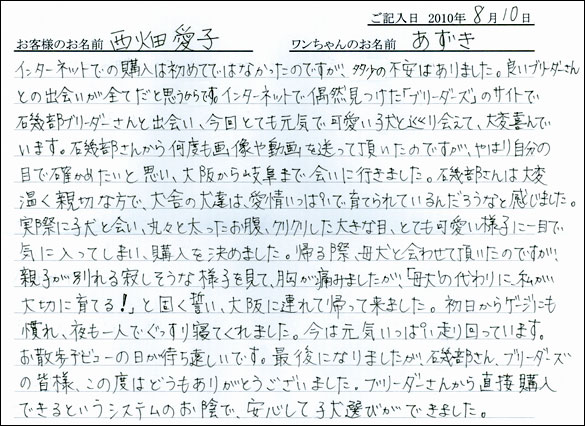 ご記入日 2010年 8月10日
お客様のお名前 西畑愛子 ワンちゃんのお名前 あずき
インターネットでの購入は初めてではなかったのですが、多少の不安はありました。良いブリーダーさん
との出会いが全てだと思うからです。インターネットで偶然見つけた「ブリーダーズ」のサイトで
石磯部ブリーダーさんと出会い、今回とても元気で可愛い子犬と巡り会えて、大変喜んで
います。石磯部さんから何度も画像や動画を送って頂いたのですが、やはり自分の
目で確かめたいと思い、大阪から岐阜まで会いに行きました。石磯部さんは大変
温く親切な方で、犬舎の犬達は、愛情いっぱいで育てられているんだろうなと感じました。
実際に子犬と会い、丸々と太ったお腹、クリクリした大きな目、とても可愛い様子に一目で
気に入ってしまい、購入を決めました。帰る際、母犬と会わせて頂いたのですが、
親子が別れる寂しそうな様子を見て、胸が痛みましたが、「母犬の代わりに、私が
大切に育てる!」と固く誓い、大阪に連れて帰って来ました。初日からゲージにも
慣れ、夜も一人でぐっすり寝てくれました。今は元気いっぱい走り回っています。
お散歩デビューの日が待ち遠しいです。最後になりましたが、石磯部さん、ブリーダーズ
の皆様、この度はどうもありがとうございました。ブリーダーさんから直接購入
できるというシステムのお陰で、安心して子犬選びができました。